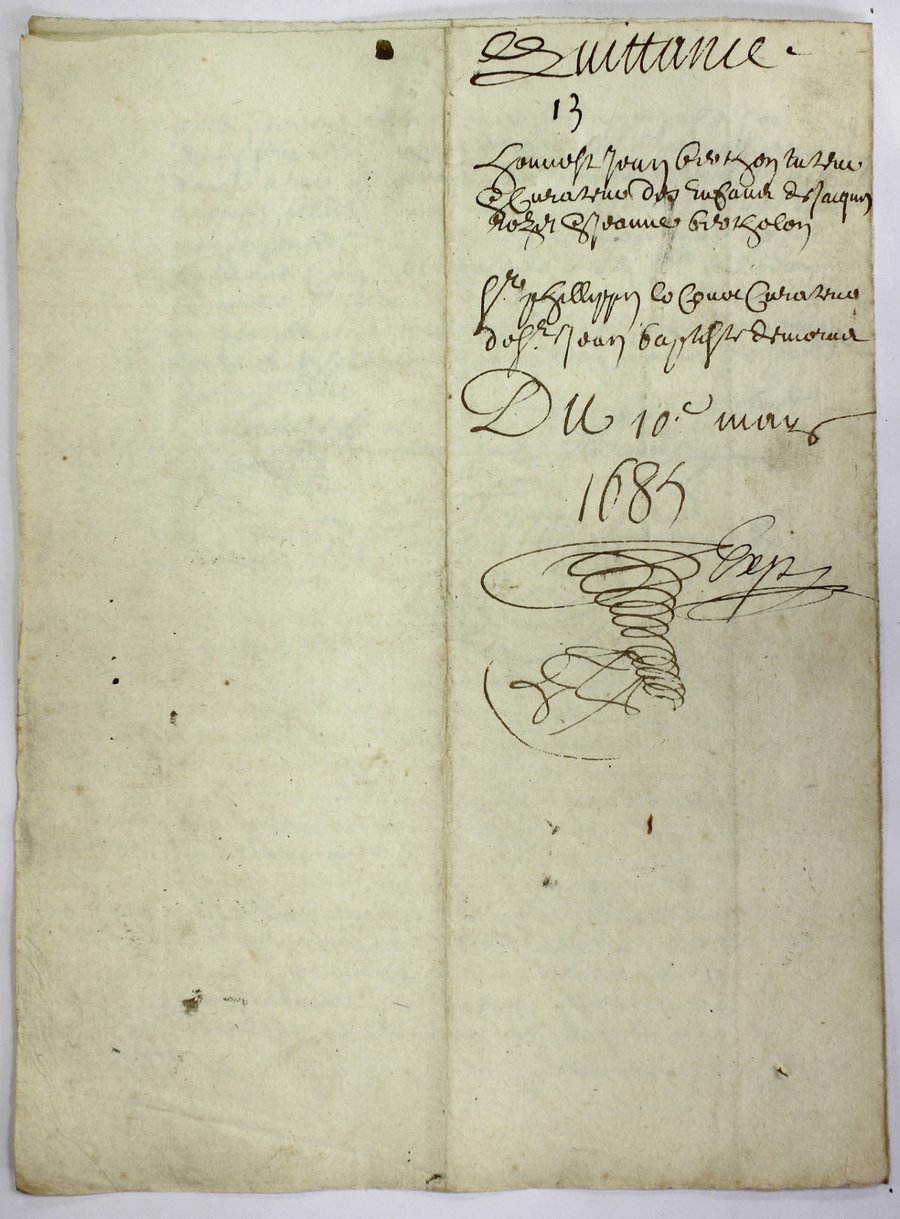 Quittance.
13
honnest Jean berthon tuteur
& Curateur des Enfans de Jacques
& Jeanne berthelon
Sr. phillippe Curateur
de Sr. Jean baptiste
Du 10e mars
1685
Exp